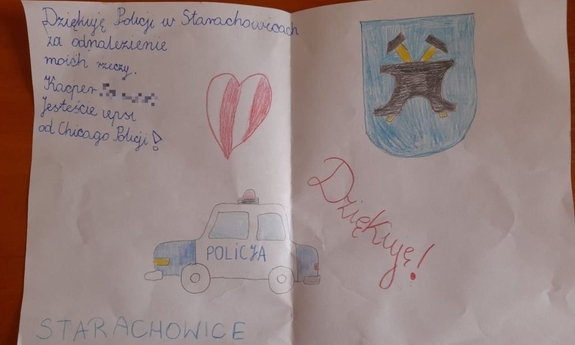 Dziękuję Policji w Starachowicach
za odnalezienie
moich rzeczy.
Kacper
Jesteście lepsi
od Chicago Policji!
Dziękuję!
POLICJA
STARACHOWICE